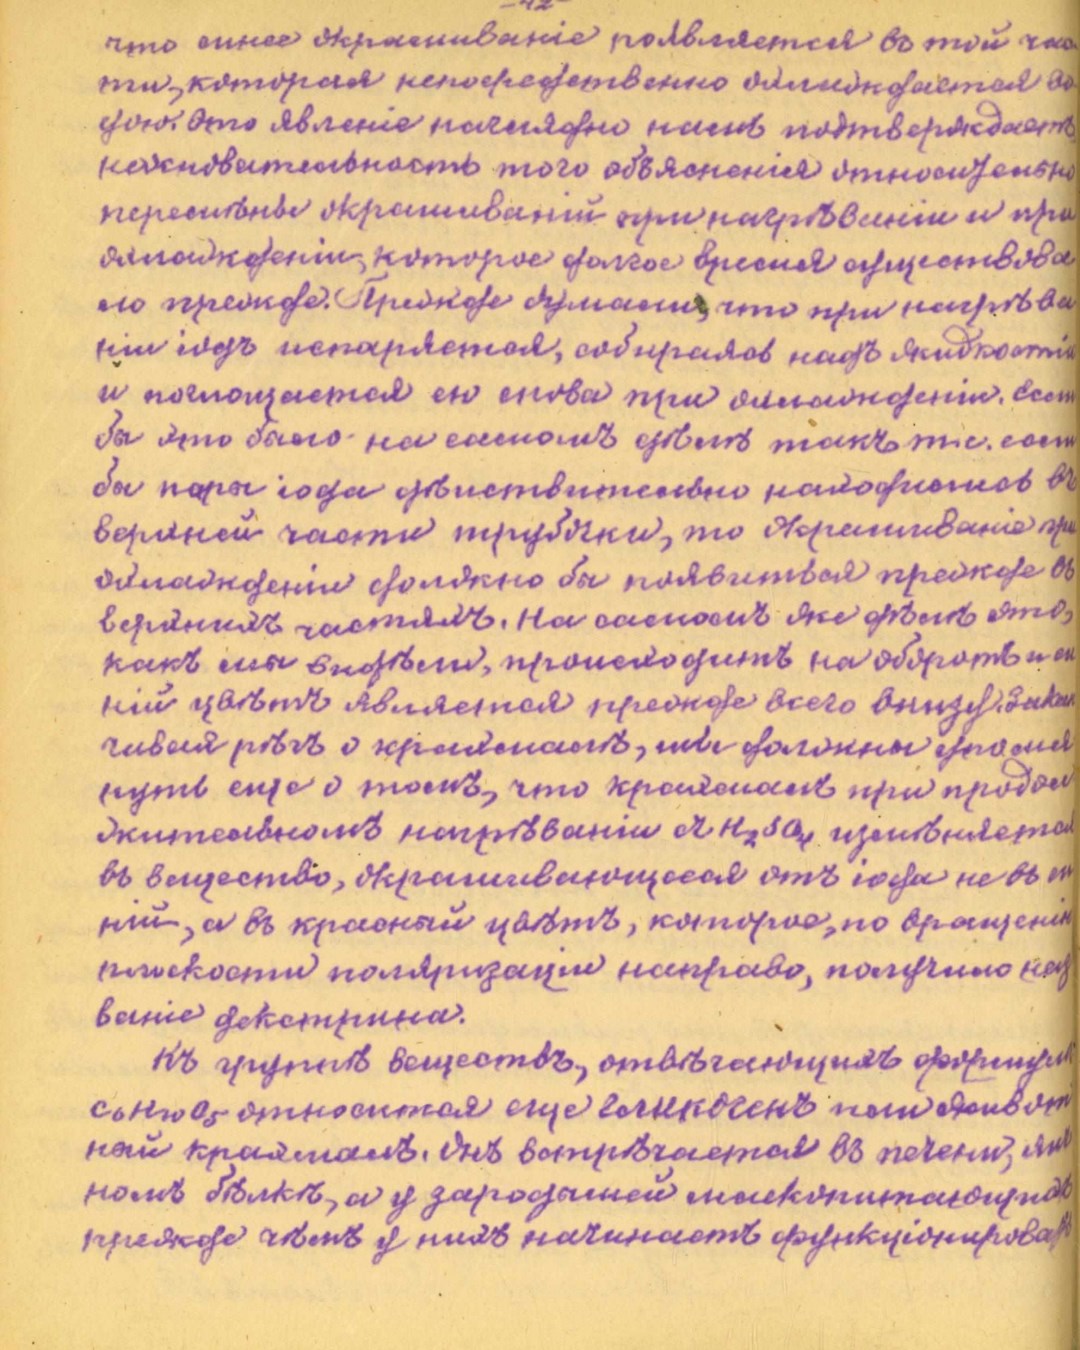 -42-
что синее окрашиваніе появляется въ той час
ти, которая непосредственно охлаждается во
дою. Это явленіе наглядно намъ подтверждаетъ
неосновательность того объясненія относительно
перемѣны окрашиваній при нагрѣваніи и при
охлажденіи, которое долгое время существова
ло прежде. Прежде думали, что при нагрѣва
ніи іодъ испаряется, собираясь надъ жидкостью
и поглощается ею снова при охлажденіи. Если
бы это было на самомъ дѣлѣ такъ т.е. если
бы пары іода дѣйствительно находились въ
верхней части трубки, то окрашиваніе при
охлажденіи должно бы появиться прежде въ
верхнихъ частяхъ. На самомъ же дѣлѣ это,
какъ мы видѣли, происходитъ на оборотъ и си
ній цвѣтъ является прежде всего внизу. Закан
чивая рѣчь о крахмалѣ, мы должны упомя
нуть еще о томъ, что крахмалъ при продол
жительномъ нагрѣваніи съ H₂SO₄ измѣняется
въ вещество, окрашивающееся отъ іода не въ си
ній, а въ красный цвѣтъ, которое, по вращенію
плоскости поляризаціи направо, получило наз
ваніе декстрина.
Къ группѣ веществъ, отвѣчающихъ формулѣ
C₆H₁₀O₅ относится еще гликогенъ или живот
ный крахмалъ. Онъ встрѣчается въ печени, яич
номъ бѣлкѣ, а у зародышей млекопитающихъ
прежде чѣмъ у нихъ начинаетъ функціонировать